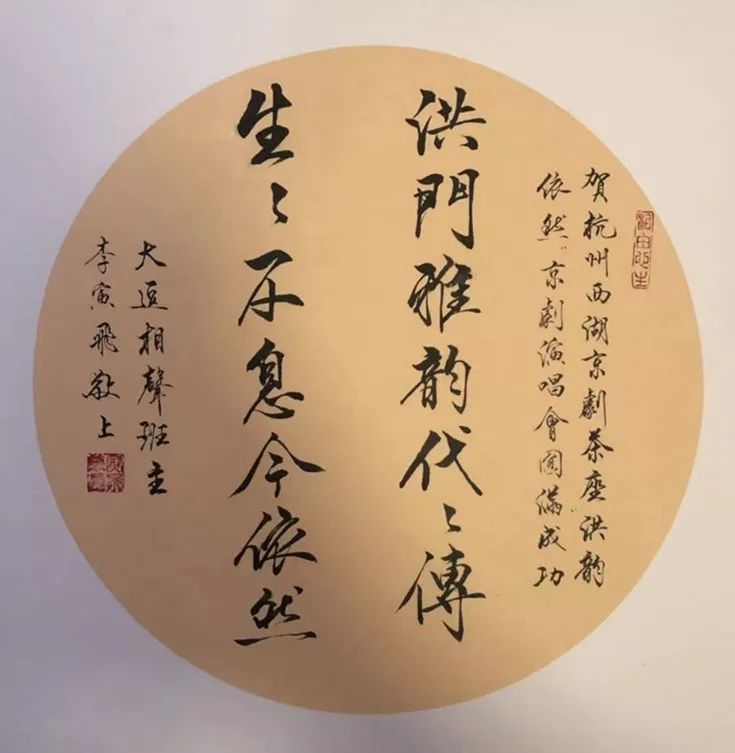 賀杭州西湖京劇茶座“洪韵
依然”京劇演唱會圓滿成功
洪門雅韵代〻傳
生〻不息今依然
大逗相聲班主
李寅飛敬上